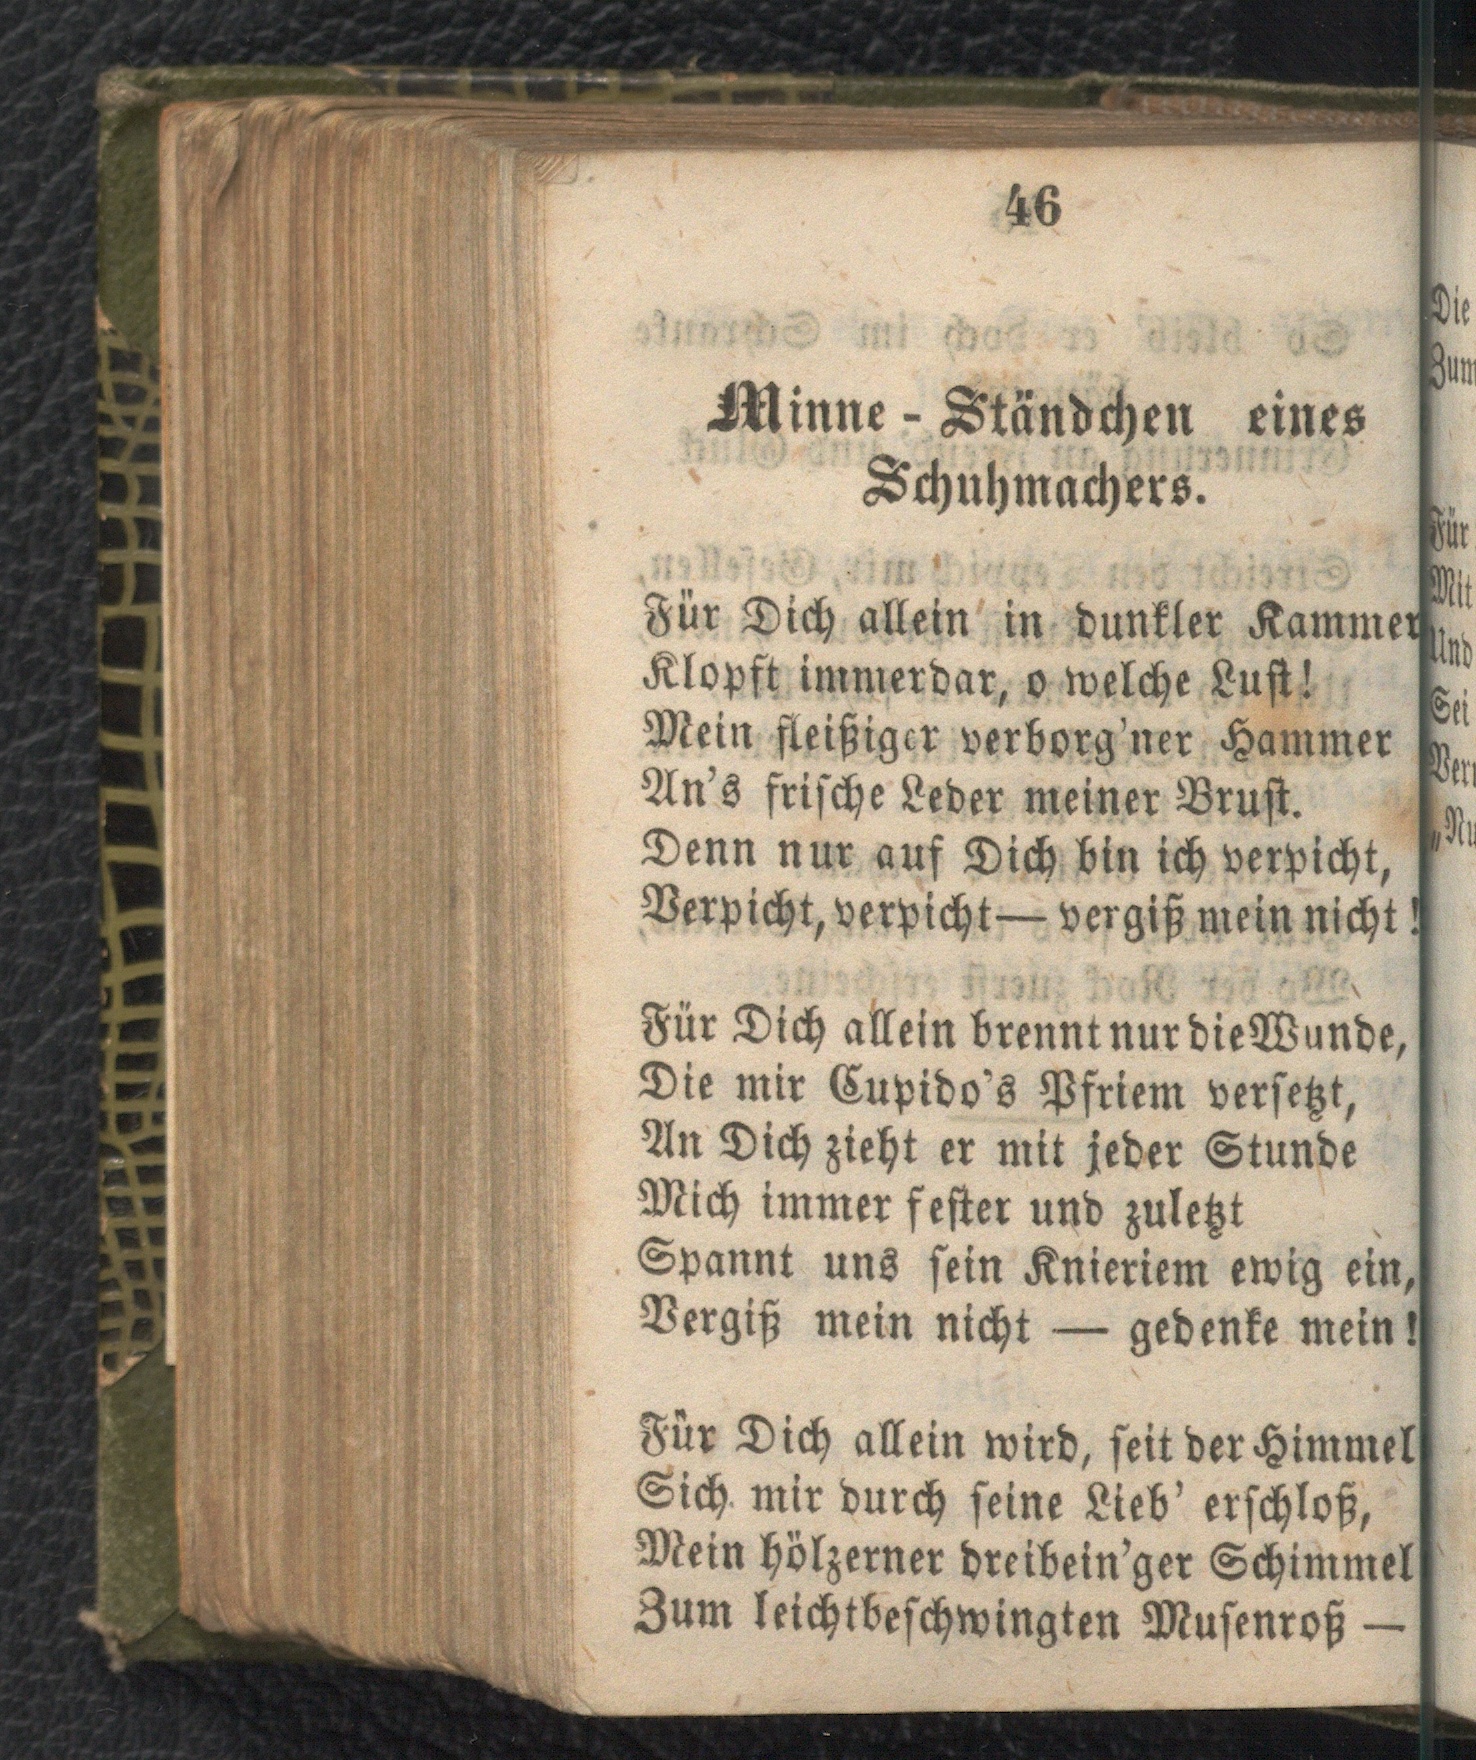 46
Minne - Ständchen eines
Schuhmachers.
Für Dich allein in dunkler Kammer
Klopft immerdar, o welche Luſt!
Mein fleißiger verborg'ner Hammer
An's friſche Leder meiner Bruſt.
Denn nur auf Dich bin ich verpicht,
Verpicht, verpicht — vergiß mein nicht!
Für Dich allein brennt nur die Wunde,
Die mir Cupido's Pfriem verſetzt,
An Dich zieht er mit jeder Stunde
Mich immer feſter und zuletzt
Spannt uns ſein Knieriem ewig ein,
Vergiß mein nicht — gedenke mein!
Für Dich allein wird, ſeit der Himmel
Sich mir durch ſeine Lieb' erſchloß,
Mein hölzerner dreibein'ger Schimmel
Zum leichtbeſchwingten Muſenroß —
Die
Zum
Für
Mit
Und
Sei